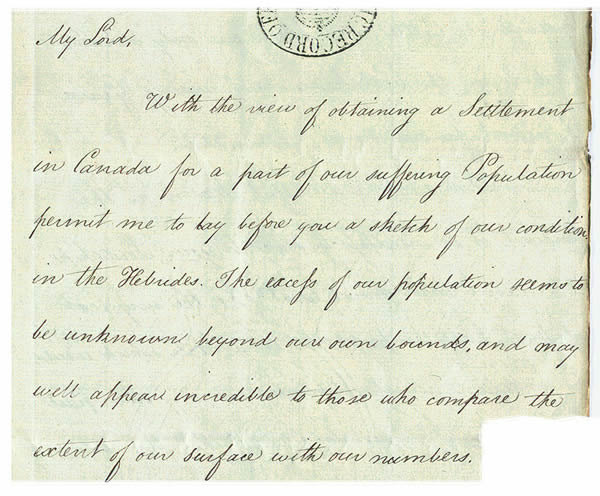 RECORD OF
My Lord,
With the view of obtaining a Settlement
in Canada for a part of our suffering Population
permit me to lay before you a sketch of our condition
in the Hebrides. The excess of our population seems to
be unknown beyond our own bounds, and may
well appear incredible to those who compare the
extent of our surface with our numbers.